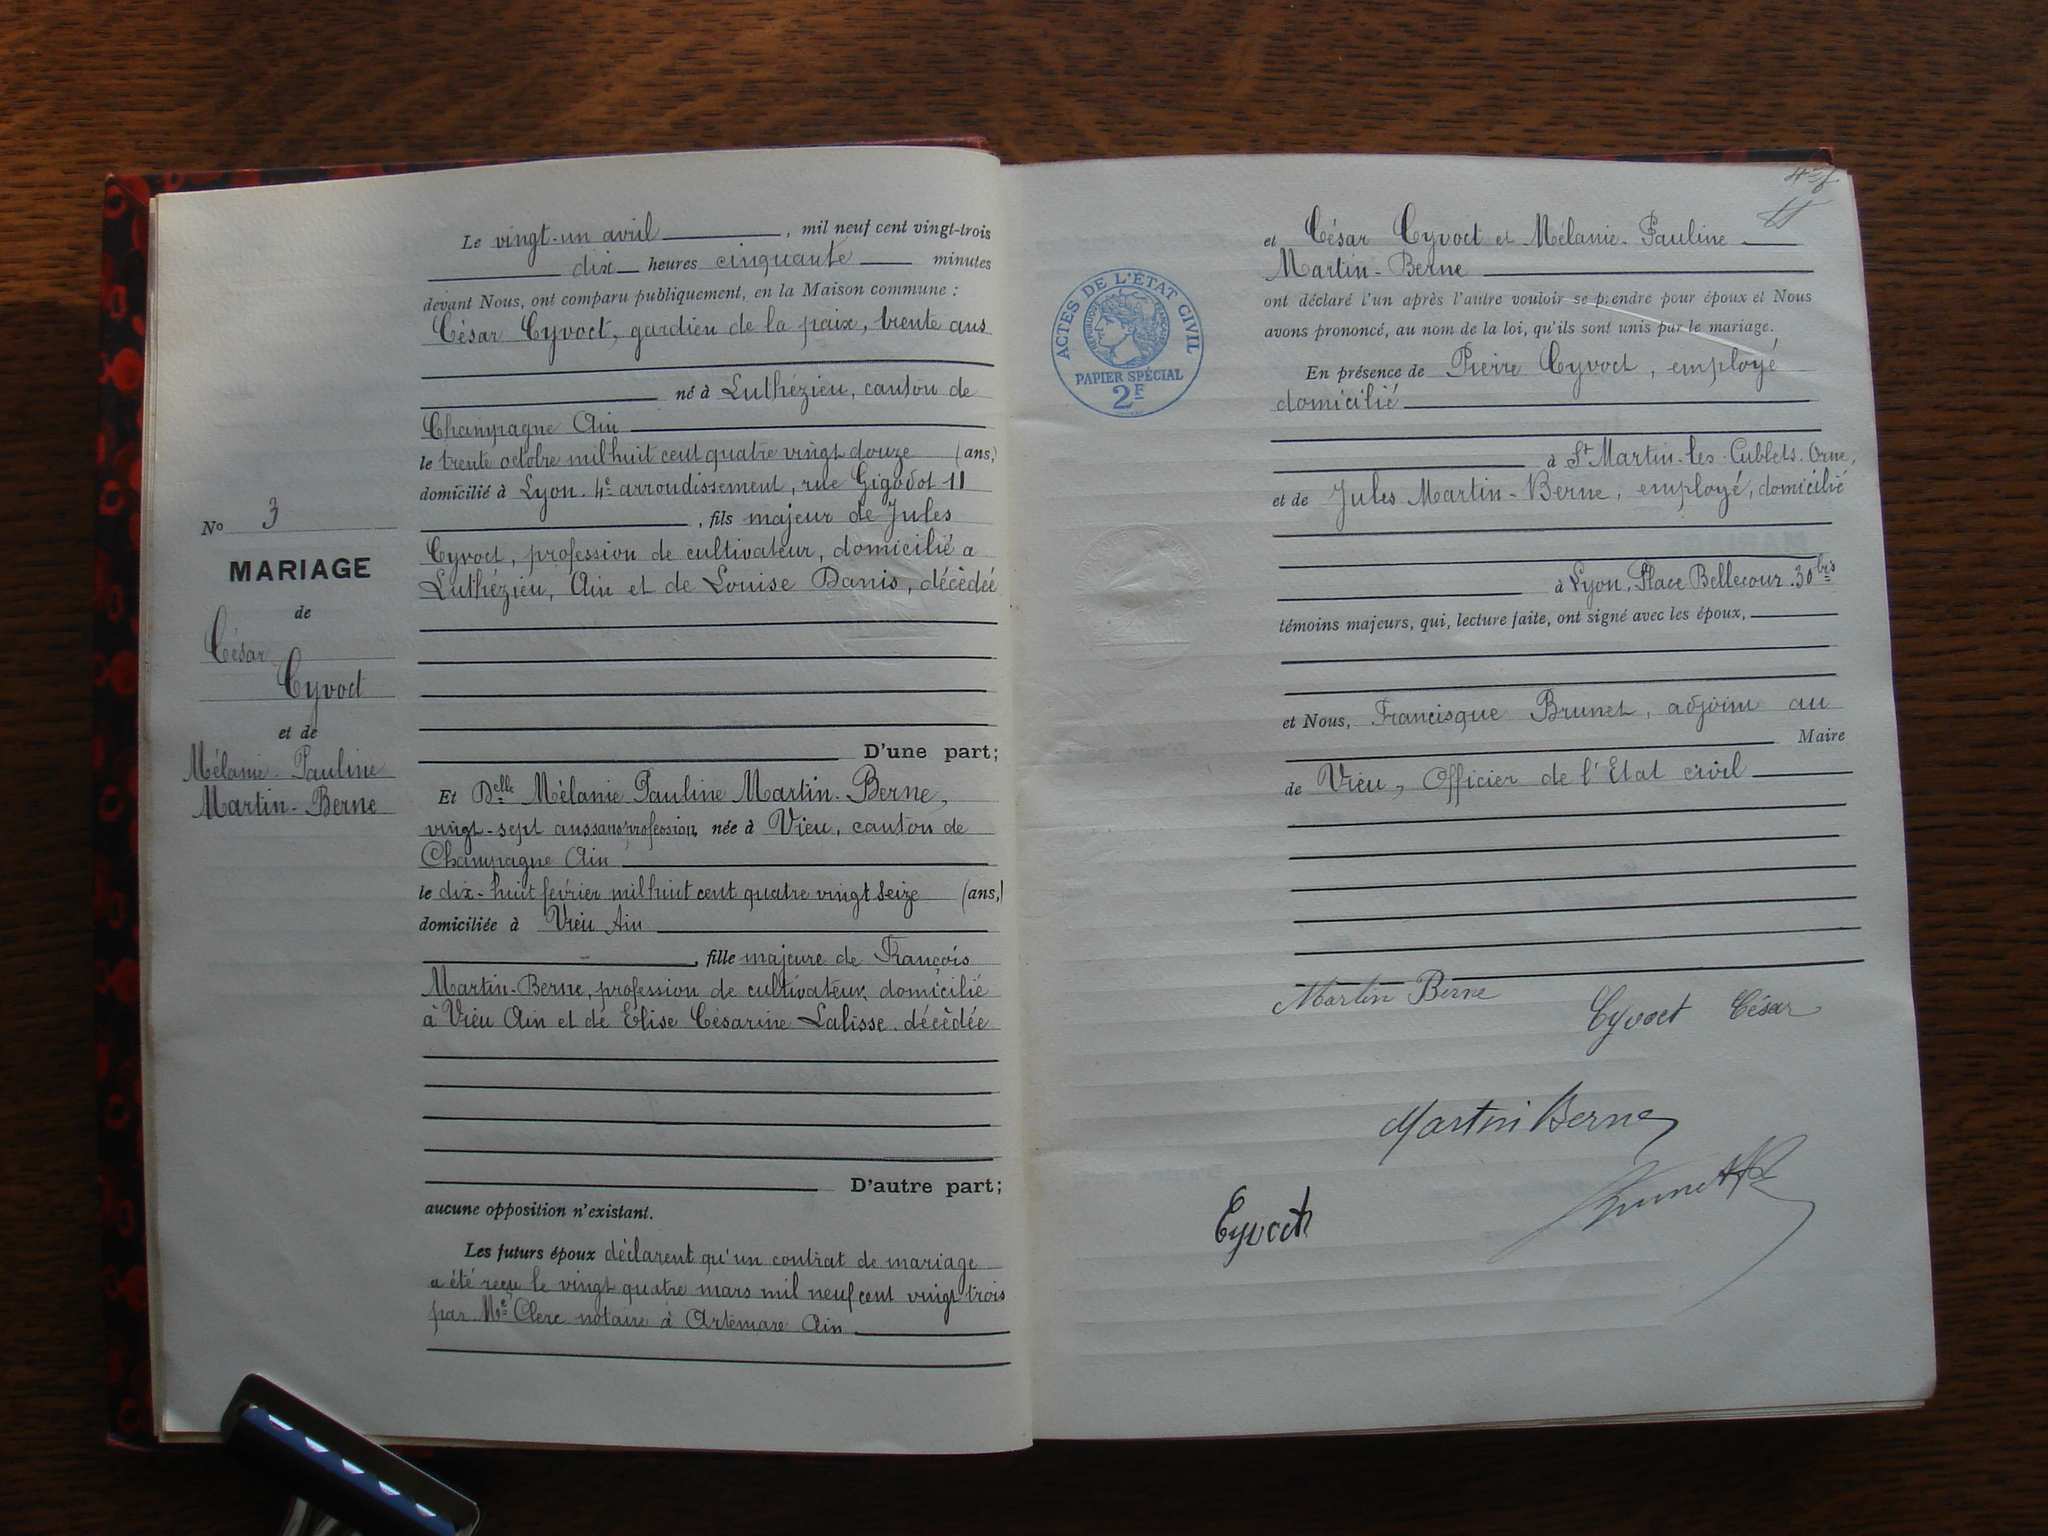 Nº 3
MARIAGE
de
César
Cyvoct
et de
Mélanie-Pauline
Martin-Berne
Le vingt-un avril, mil neuf cent vingt-trois
dix heures cinquante minutes
devant Nous, ont comparu publiquement, en la Maison commune :
César Cyvoct, gardien de la paix, trente ans
né à Luthézieu, canton de
Champagne Ain
le trente octobre mil huit cent quatre vingt douze (ans,)
domicilié à Lyon. 4e arrondissement, rue Gigodot 11
, fils majeur de Jules
Cyvoct, profession de cultivateur, domicilié a
Luthézieu, Ain et de Louise Danis, décèdée
D'une part;
Et Delle Mélanie Pauline Martin-Berne,
vingt-sept ans sans profession, née à Vieu, canton de
Champagne Ain
le dix-huit février mil huit cent quatre vingt seize (ans,)
domiciliée à Vieu Ain
, fille majeure de François
Martin-Berne, profession de cultivateur, domicilié
à Vieu Ain et de Elise Césarine Lalisse. décèdée
D'autre part;
aucune opposition n'existant.
Les futurs époux déclarent qu'un contrat de mariage
a été reçu le vingt quatre mars mil neuf cent vingt trois
par Me Clerc notaire à Artemare Ain
ACTES DE L'ÉTAT CIVIL
RÉPUBLIQUE FRANÇAISE
PAPIER SPÉCIAL
2F
et César Cyvoct et Mélanie-Pauline
Martin-Berne
ont déclaré l'un après l'autre vouloir se prendre pour époux et Nous
avons prononcé, au nom de la loi, qu'ils sont unis par le mariage.
En présence de Pierre Cyvoct, employé
domicilié
à St Martin-les-Cublets. Orne,
et de Jules Martin-Berne, employé, domicilié
à Lyon, Place Bellecour. 30 bis
témoins majeurs, qui, lecture faite, ont signé avec les époux,
et Nous, Francisque Brunet, adjoint au
Maire
de Vieu, Officier de l'Etat civil
Martin Berne
Cyvoct César
Martin Berne
Cyvoct
Brunet